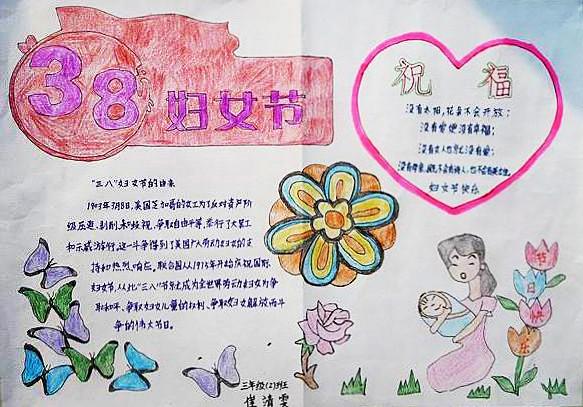 38
妇女节
"三八"妇女节的由来
1903年3月8日,美国芝加哥的女工为了反对资产阶
级压迫、剥削和歧视,争取自由平等,举行了大罢工
和示威游行,这一斗争得到了美国广大劳动妇女的支
持和热烈响应。联合国从1975年开始庆祝国际
妇女节,从此"三八"节就成为全世界劳动妇女为争
取和平、争取妇女儿童的权利、争取妇女解放而斗
争的伟大节日。
三年级(2)班
崔清雯
祝福
没有太阳,花朵不会开放;
没有爱便没有幸福;
没有女人也就没有爱;
没有母亲,既不会有诗人,也不会有英雄。
妇女节快乐
节
日
快
乐